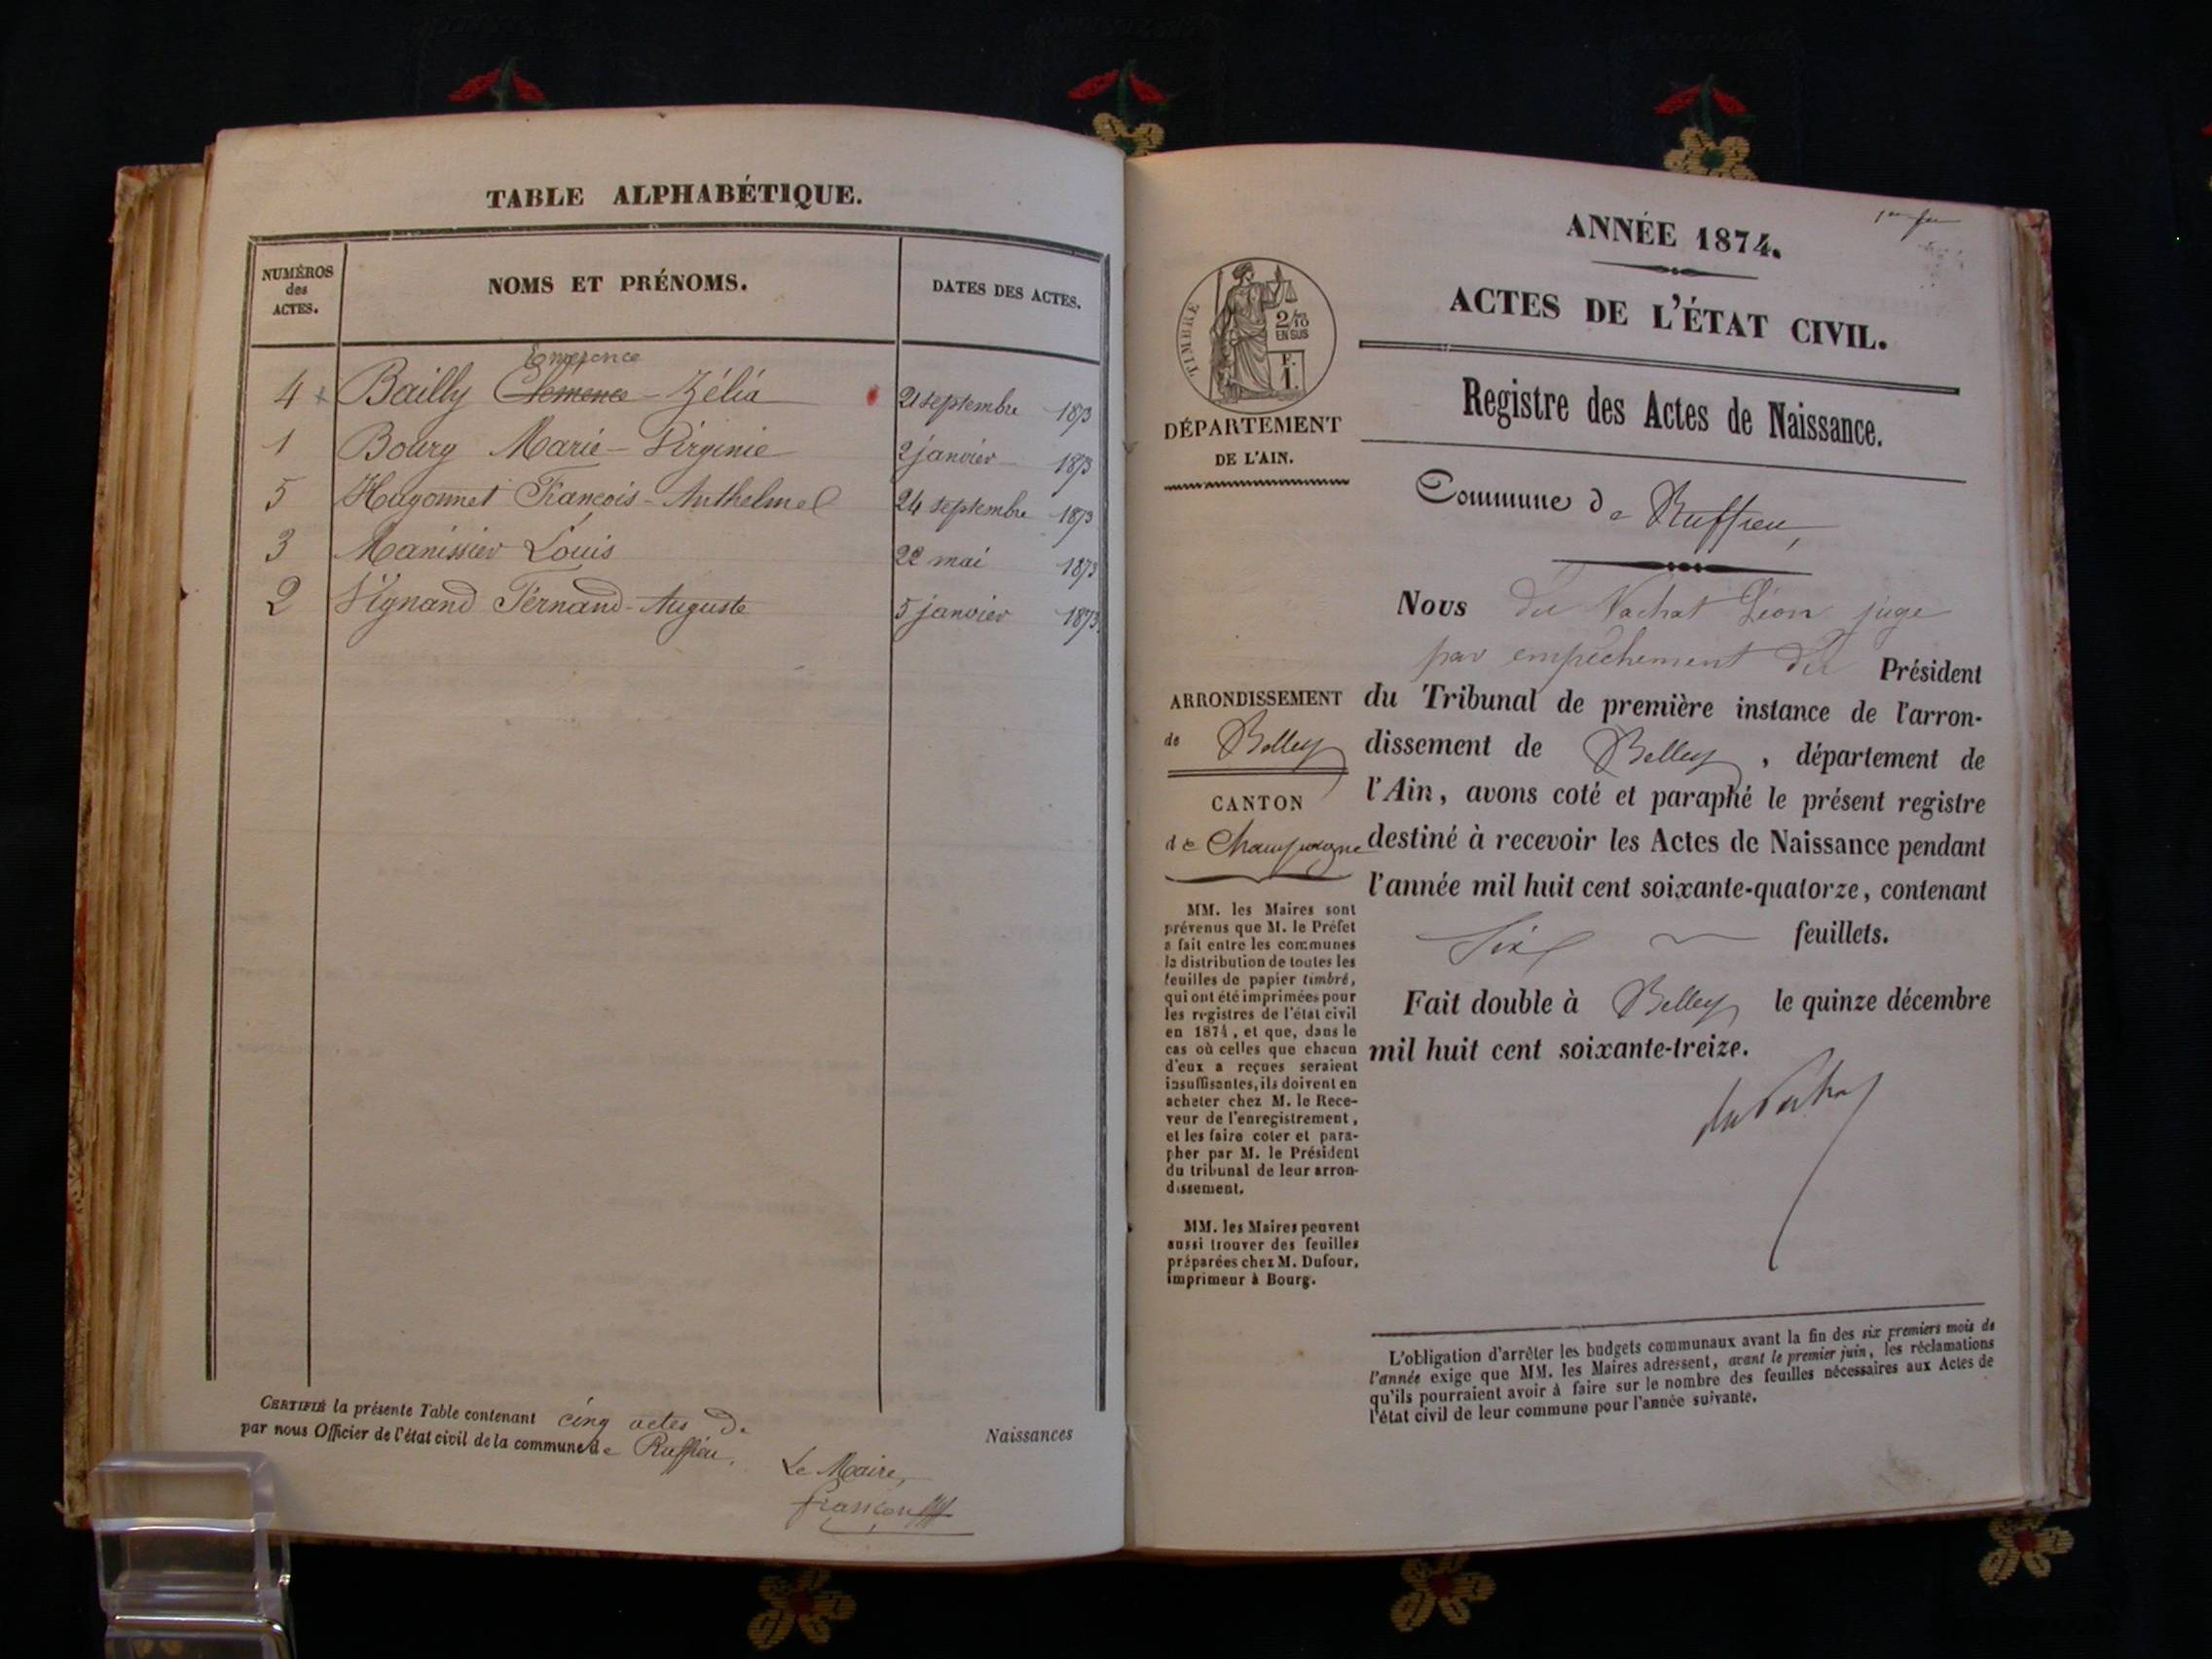 TABLE ALPHABÉTIQUE.
NUMÉROS des ACTES.
NOMS ET PRÉNOMS.
DATES DES ACTES.
4 Bailly Clemence - Zélia 21 septembre 1873
1 Bourg Marie - Virginie 2 janvier 1873
5 Hugonnet François - Anthelme 24 septembre 1873
3 Manissier Louis 22 mai 1873
2 Vignand Fernand - Auguste 5 janvier 1873
CERTIFIÉ la présente Table contenant cinq actes de Naissances
par nous Officier de l'état civil de la commune de Ruffieu.
Le Maire,
ANNÉE 1874.
ACTES DE L'ÉTAT CIVIL.
Registre des Actes de Naissance.
TIMBRE
2/10
EN SUS
F.
1.
DÉPARTEMENT
DE L'AIN.
Commune de Ruffieu,
ARRONDISSEMENT
de Belley
CANTON
de Champagne
MM. les Maires sont
prévenus que M. le Préfet
a fait entre les communes
la distribution de toutes les
feuilles de papier timbré,
qui ont été imprimées pour
les registres de l'état civil
en 1874, et que, dans le
cas où celles que chacun
d'eux a reçues seraient
insuffisantes, ils doivent en
acheter chez M. le Rece-
veur de l'enregistrement,
et les faire coter et para-
pher par M. le Président
du tribunal de leur arron-
dissement.
MM. les Maires peuvent
aussi trouver des feuilles
préparées chez M. Dufour,
imprimeur à Bourg.
Nous du Vachat Léon juge
par empêchement du Président
du Tribunal de première instance de l'arron-
dissement de Belley, département de
l'Ain, avons coté et paraphé le présent registre
destiné à recevoir les Actes de Naissance pendant
l'année mil huit cent soixante-quatorze, contenant
Six feuillets.
Fait double à Belley le quinze décembre
mil huit cent soixante-treize.
du Vachat
L'obligation d'arrêter les budgets communaux avant la fin des six premiers mois de
l'année exige que MM. les Maires adressent, avant le premier juin, les réclamations
qu'ils pourraient avoir à faire sur le nombre des feuilles nécessaires aux Actes de
l'état civil de leur commune pour l'année suivante.